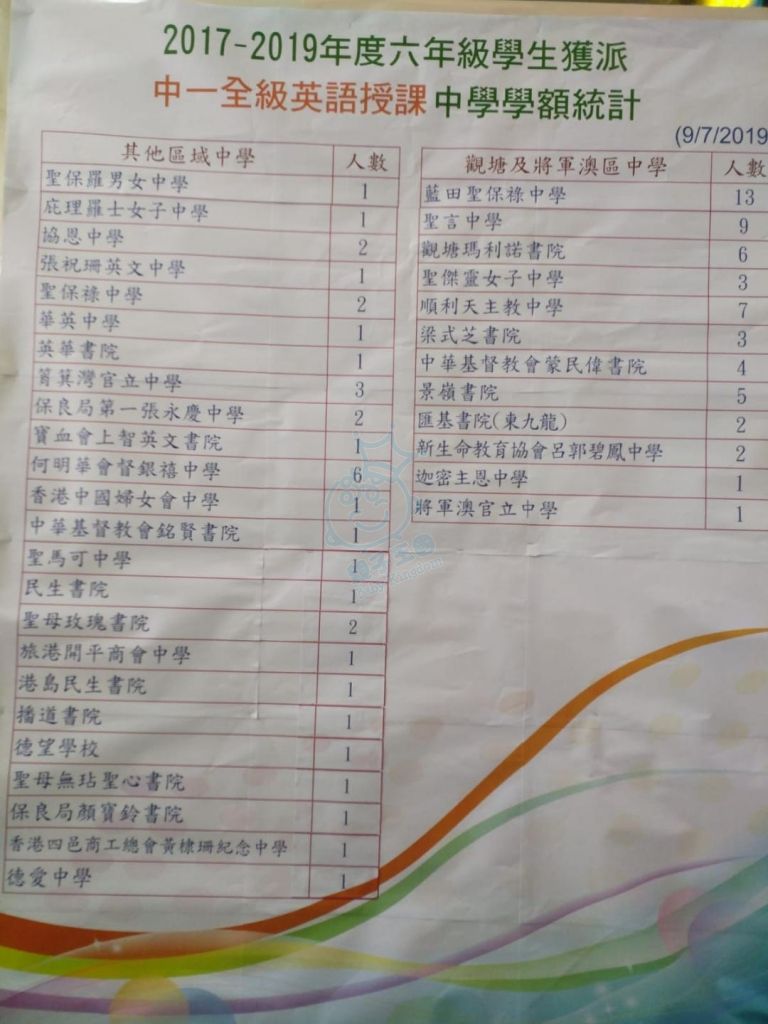 2017-2019年度六年級學生獲派
中一全級英語授課中學學額統計
(9/7/2019
其他區域中學 人數
聖保羅男女中學 1
庇理羅士女子中學 1
協恩中學 2
張祝珊英文中學 1
聖保祿中學 2
華英中學 1
英華書院 1
筲箕灣官立中學 3
保良局第一張永慶中學 2
寶血會上智英文書院 1
何明華會督銀禧中學 6
香港中國婦女會中學 1
中華基督教會銘賢書院 1
聖馬可中學 1
民生書院 1
聖母玫瑰書院 2
旅港開平商會中學 1
港島民生書院 1
播道書院 1
德望學校 1
聖母無玷聖心書院 1
保良局顏寶鈴書院 1
香港四邑商工總會黃棣珊紀念中學 1
德愛中學 1
觀塘及將軍澳區中學 人數
藍田聖保祿中學 13
聖言中學 9
觀塘瑪利諾書院 6
聖傑靈女子中學 3
順利天主教中學 7
梁式芝書院 3
中華基督教會蒙民偉書院 4
景嶺書院 5
匯基書院(東九龍) 2
新生命教育協會呂郭碧鳳中學 2
迦密主恩中學 1
將軍澳官立中學 1
親子王國
Baby Kingdom